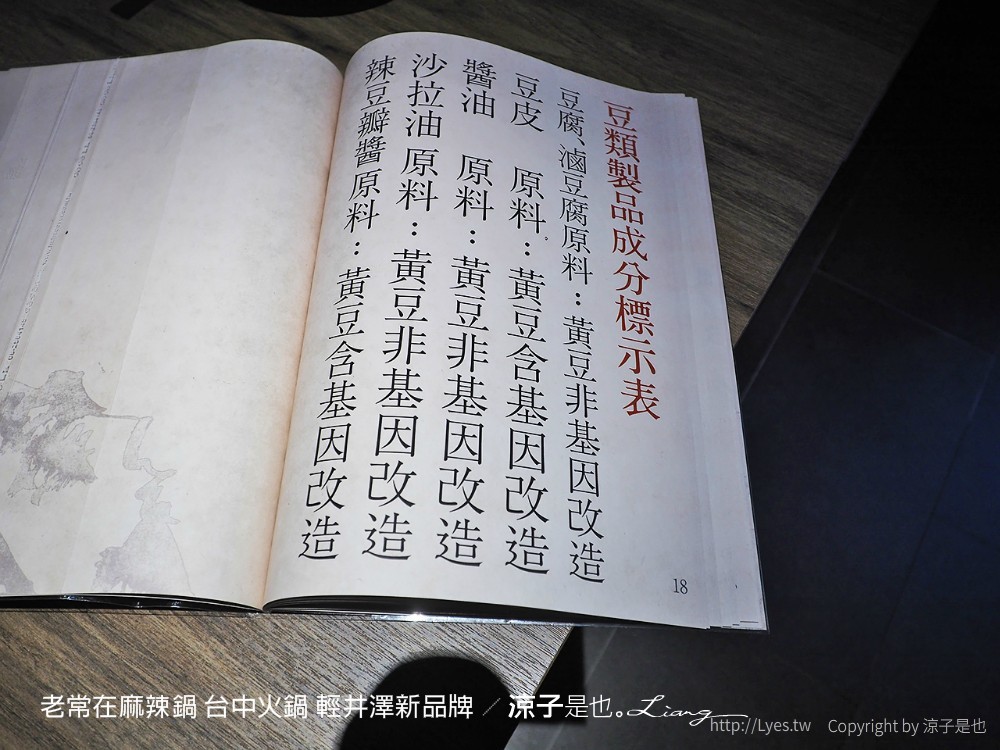 豆類製品成分標示表
豆腐、滷豆腐原料：黃豆非基因改造
豆皮 原料：黃豆含基因改造
醬油 原料：黃豆非基因改造
沙拉油 原料：黃豆非基因改造
辣豆瓣醬 原料：黃豆含基因改造
18
老常在麻辣鍋 台中火鍋 輕井澤新品牌 ／ 涼子是也。Liang
http://Lyes.tw Copyright by 涼子是也